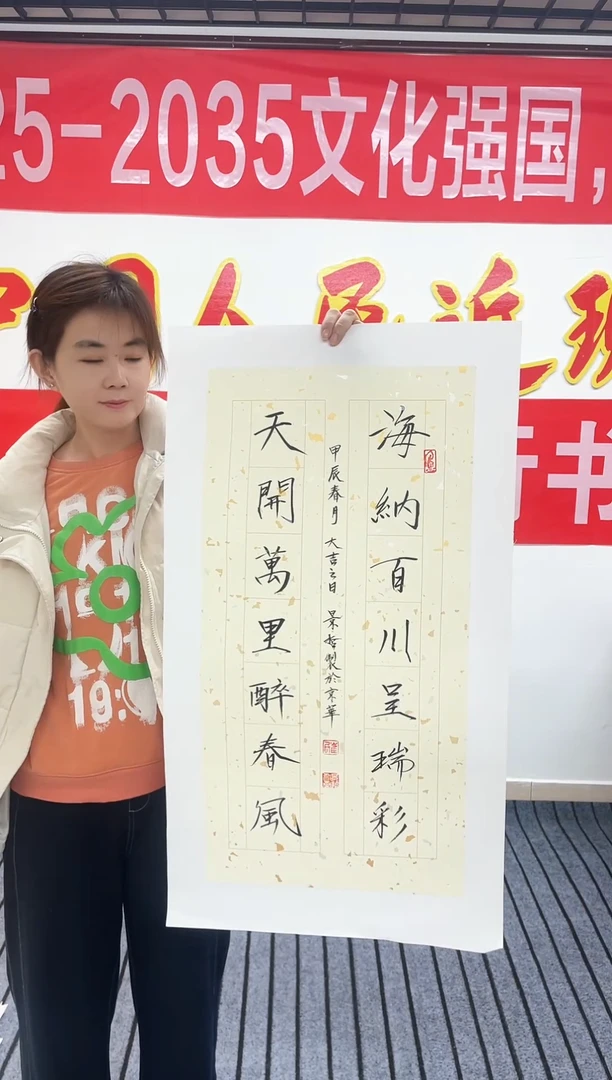 25-2035文化强国，
国人民近现
行书
海納百川呈瑞彩
天開萬里醉春風
甲辰春月 大吉之日 景哲製於京華